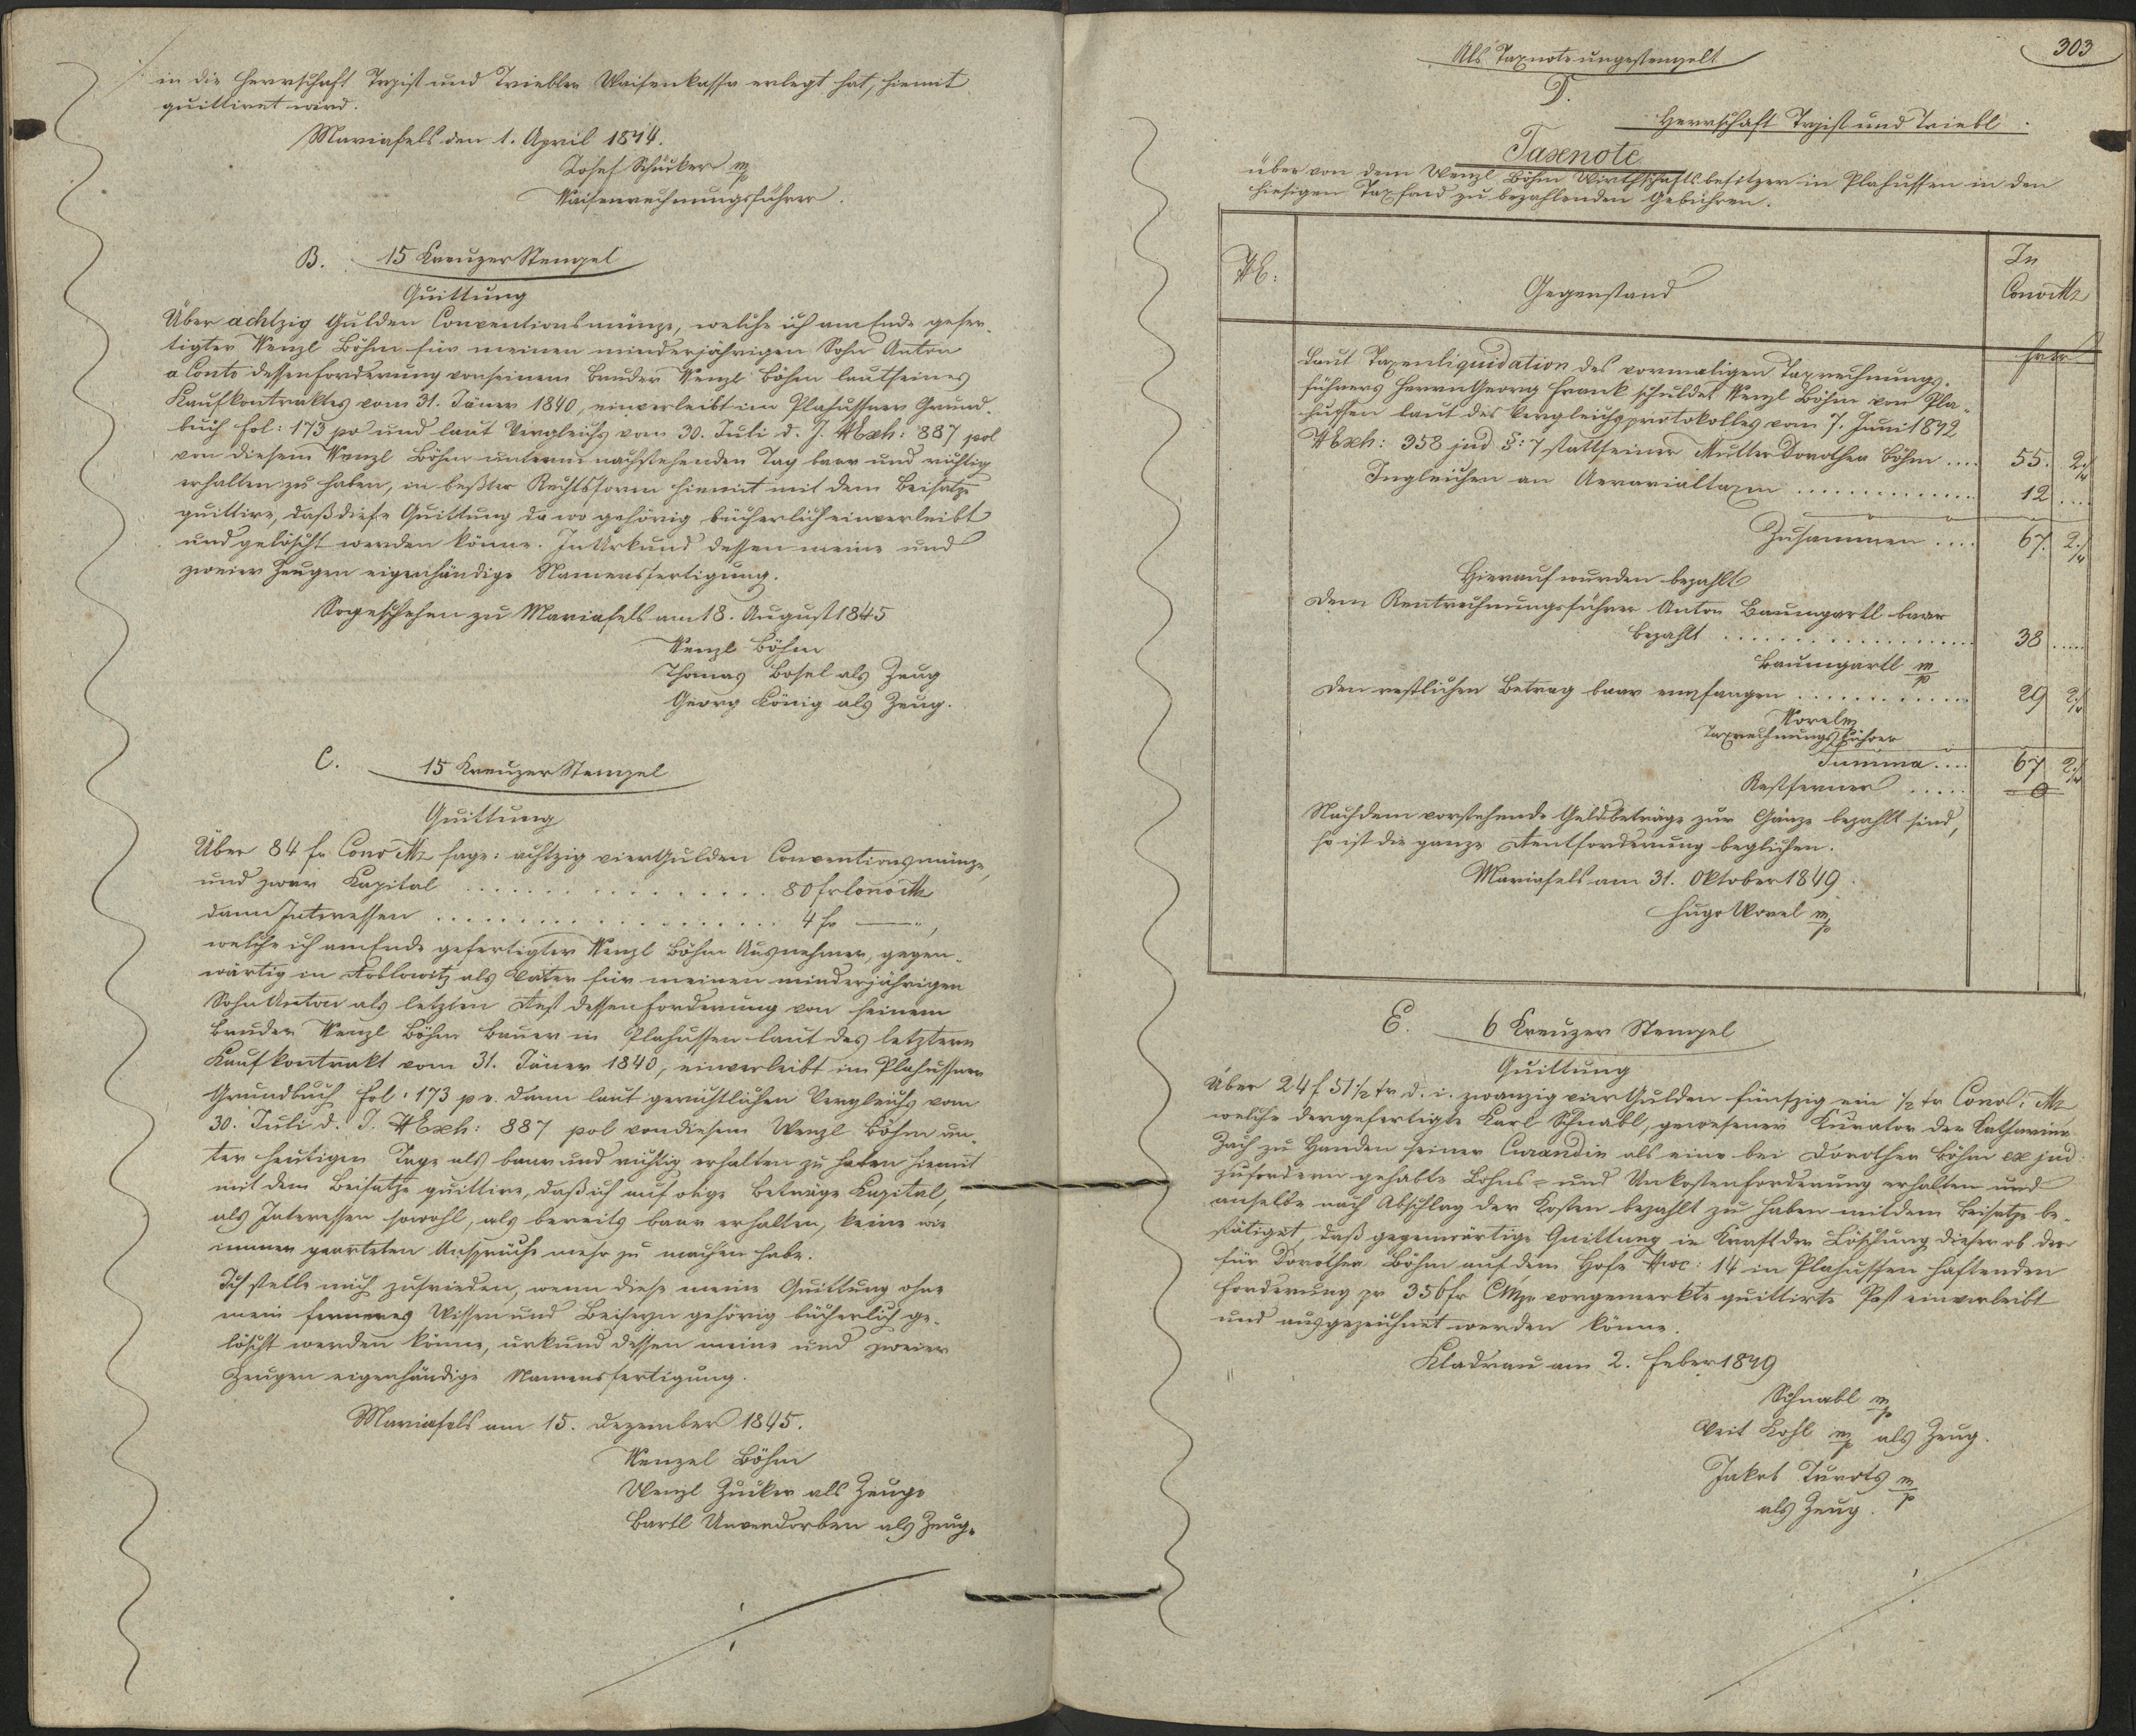 in die Herrschaft Trpist und Triebler Waisenkasse erlegt hat, hiemit
quittiret wird.
Mariafels den 1. April 1844.
Josef Schücker m/p
Waisenrechnungsführer.
B. 15 Kreuzer Stempel
Quittung
Über achtzig Gulden Conventionsmünze, welche ich am Ende gefer-
tigter Wenzl Böhm für meinen minderjährigen Sohn Anton
a Conto dessen Forderung von seinem Bruder Wenzl Böhm laut seines
Kaufkontraktes vom 31. Jäner 1840, einverleibt im Plahussner Grund-
buch fol: 173 pv und laut Vergleichs vom 30. Juli d. J. NExh: 887 pol
von diesem Wenzl Böhm unterm nachstehenden Tag baar und richtig
erhalten zu haben, in beßter Rechtsform hiemit mit dem Beisatze
quittire, daß diese Quittung da wo gehörig bücherlich einverleibt
und gelöscht werden könne. In Urkund dessen meine und
zweier Zeugen eigenhändige Namensfertigung.
So geschehen zu Mariafels am 18. August 1845
Wenzl Böhm
Thomas Bosel als Zeug
Georg König als Zeug.
C. 15 Kreuzer Stempel
Quittung
Über 84 fr Conv Mz sage: achtzig vier Gulden Conventionsmünze,
und zwar Kapital ................ 80 fr Conv Mz
dann Interessen .................. 4 fr —— "
welche ich am Ende gefertigter Wenzl Böhm Ausnehmer, gegen-
wärtig in als Vater für meinen minderjährigen
Sohn Anton als letzten Rest dessen Forderung von seinem
Bruder Wenzl Böhm Bauer in Plahussen laut des letztern
Kaufkontrakt vom 31. Jäner 1840, einverleibt im Plahussner
Grundbuch fol: 173 p v. dann laut gerichtlichen Vergleichs vom
30. Juli d. J. NExh: 887 pol von diesem Wenzl Böhm un-
ter heutigen Tage als baar und richtig erhalten zu haben hiemit
mit dem Beisatze quittire, daß ich auf obige Beträge Kapital,
als Interessen sowohl, als bereits baar erhalten, keine wie
immer gearteten Ansprüche mehr zu machen habe.
Ich stelle mich zufrieden, wenn diese meine Quittung ohne
mein ferneres Wissen und Beiseyn gehörig bücherlich ge-
löscht werden könne, urkund dessen meine und zweier
Zeugen eigenhändige Namensfertigung.
Mariafels am 15. Dezember 1845.
Wenzel Böhm
Wenzl Zücker als Zeuge
Bartl Unverdorben als Zeug.
303
Als Taxnote ungestempelt
D.
Herrschaft Trpist und Triebl.
Taxnote
über von dem Wenzl Böhm Wirthschaftsbesitzer in Plahussen in den
hiesigen Taxfond zu bezahlenden Gebühren.
NE: Gegenstand In Conv Mz
fr kr
Laut Taxenliquidation des vormaligen Taxrechnungs-
führers Herrn Georg Frank schuldet Wenzl Böhm von Pla-
hussen laut des Vergleichsprotokolles vom 7. Juni 1842
NExh: 358 jud §: 7 statt seiner Mutter Dorothea Böhm .... 55. 2/4
Ingleichen an Aerarialtaxen ............ 12 ....
Zusammen .... 67. 2/4
Hierauf wurden bezahlt
Dem Rentrechnungsführer Anton Baumgartl baar
bezahlt .................. 38 ....
Baumgartl m/p
Den restlichen Betrag baar empfangen ............ 29 2/4
Worel m/p
Taxrechnungsführer
Summa .... 67 2/4
Rest ferner ..... 0
Nachdem vorstehende Geldbeträge zur Gänze bezahlt sind,
so ist die ganze Rentforderung beglichen.
Mariafels am 31. Oktober 1849.
Hugo Worel m/p
E. 6 Kreuzer Stempel
Quittung
Über 24 f 51 1/2 kr d. i. zwanzig vier Gulden fünfzig ein 1/2 kr Convl: Mz
welche der gefertigte Karl Schnabl, gewesener Kurator der Katharina
Zach zu Handen seiner Curandin als eine bei Dorothea Böhm ex jud:
zufordern gehabte Lohns- und Unkostenforderung erhalten und
an selbe nach Abschlag der Kosten bezahlt zu haben mit dem Beisatze be-
stätiget, daß gegenwärtige Quittung in Kraft der Löschung dieser ob der
für Dorothea Böhm auf dem Hofe Nroc: 14 in Plahussen haftenden
Forderung pr 356 fr CMze vorgemerkte quittirte Post einverleibt
und ausgezeichnet werden könne.
Kladrau am 2. Feber 1849
Schnabl m/p
Veit Kohl m/p als Zeug.
Jakob m/p
als Zeug.